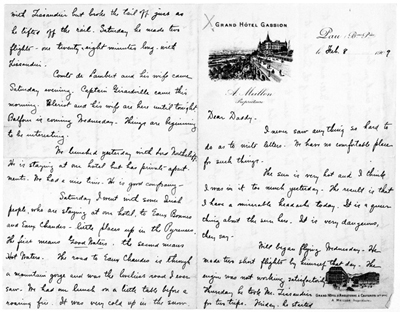 GRAND HÔTEL GASSION
Pau,
le Feb. 8 1909
A. Meillon
Propriétaire
Dear Daddy-
I never saw any thing so hard to
do as to write letters. We have no comfortable place
for such things.
The sun is very hot and I think
I was in it too much yesterday. The result is that
I have a miserable headache today. It is a queer
thing about the sun here. It is very dangerous,
they say.
Will began flying Wednesday. He
made two short flights by himself that day. The
engine was not working satisfactorily
Thursday he took Mr. Tissandier
for two trips. Friday he started
GRAND HÔTEL GASSION
A. MEILLON
with Tissandier but broke the tail off just as
he lifted off the rail. Saturday he made two
flights - one twenty-eight minutes long with
Tissandier.
Comte de Lambert and his wife came
Saturday evening. Captain Girardville came this
morning. Bleriot and his wife are here until tonight
Balfour is coming Wednesday. Things are beginning
to be interesting.
We lunched yesterday with Lord Northcliffe.
He is staying at our hotel but has private apart-
ments. We had a nice time. He is good company-
Saturday I went with some Irish
people, who are staying at our hotel, to Eaux Bonnes
and Eaux Chaudes - little places up in the Pyrenees.
The first means Good Waters - the second means
Hot Waters. The road to Eaux Chaudes is through
a mountain gorge and was the loveliest road I ever
saw. We had our lunch on a little table before a
roaring fire. It was very cold up in the snow